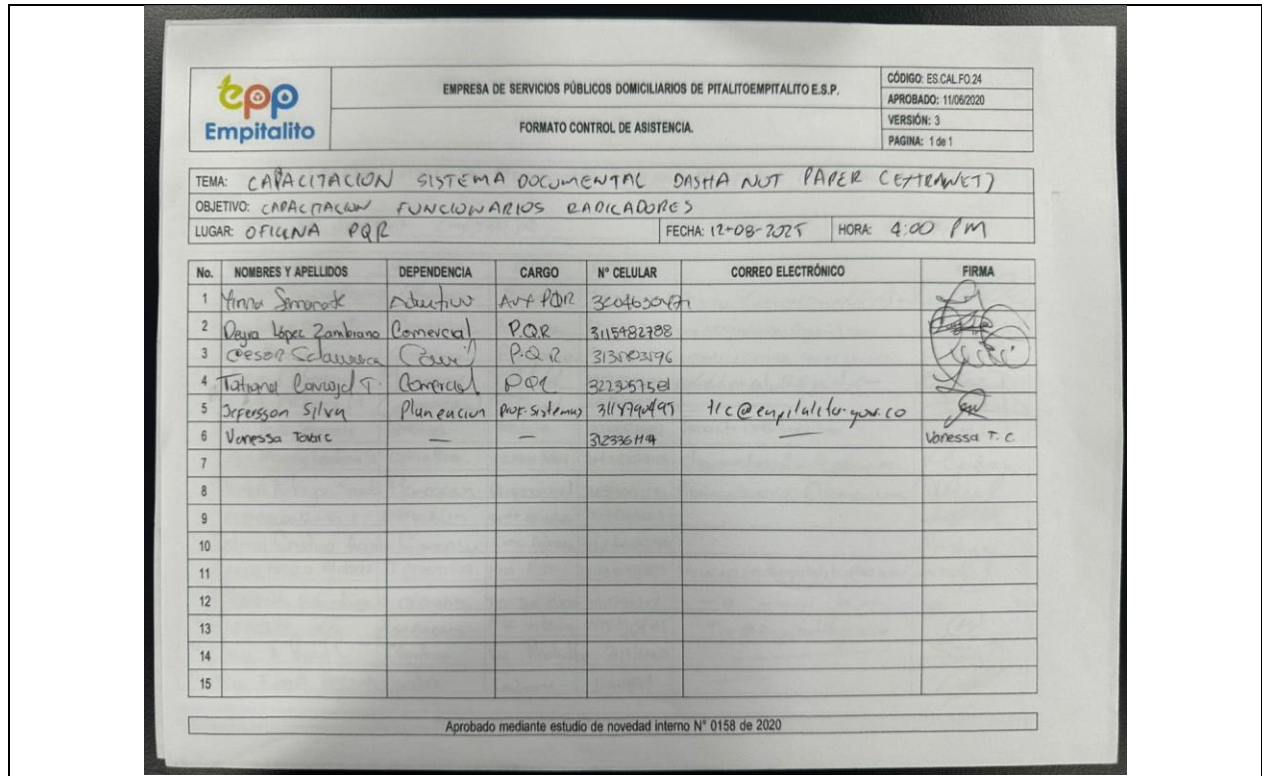 epp
Empitalito
EMPRESA DE SERVICIOS PÚBLICOS DOMICILIARIOS DE PITALITOEMPITALITO E.S.P.
FORMATO CONTROL DE ASISTENCIA.
CÓDIGO: ES.CAL.FO.24
APROBADO: 11/06/2020
VERSIÓN: 3
PAGINA: 1 de 1
TEMA: CAPACITACION SISTEMA DOCUMENTAL DASHA NOT PAPER (EXTRANET)
OBJETIVO: CAPACITACION FUNCIONARIOS RADICADORES
LUGAR: OFICINA PQR FECHA: 12-08-2025 HORA: 4:00 PM
No. NOMBRES Y APELLIDOS DEPENDENCIA CARGO N° CELULAR CORREO ELECTRÓNICO FIRMA
1 Aux PQR
2 López Zambrano Comercial P.Q.R 3115482788
3 P.Q.R
4 Tatiana Carvajal T. Comercial PQR
5 Jefersson Silva Planeacion Prof. Sistemas
6 Vanessa — — — Vanessa T. C.
7
8
9
10
11
12
13
14
15
Aprobado mediante estudio de novedad interno N° 0158 de 2020